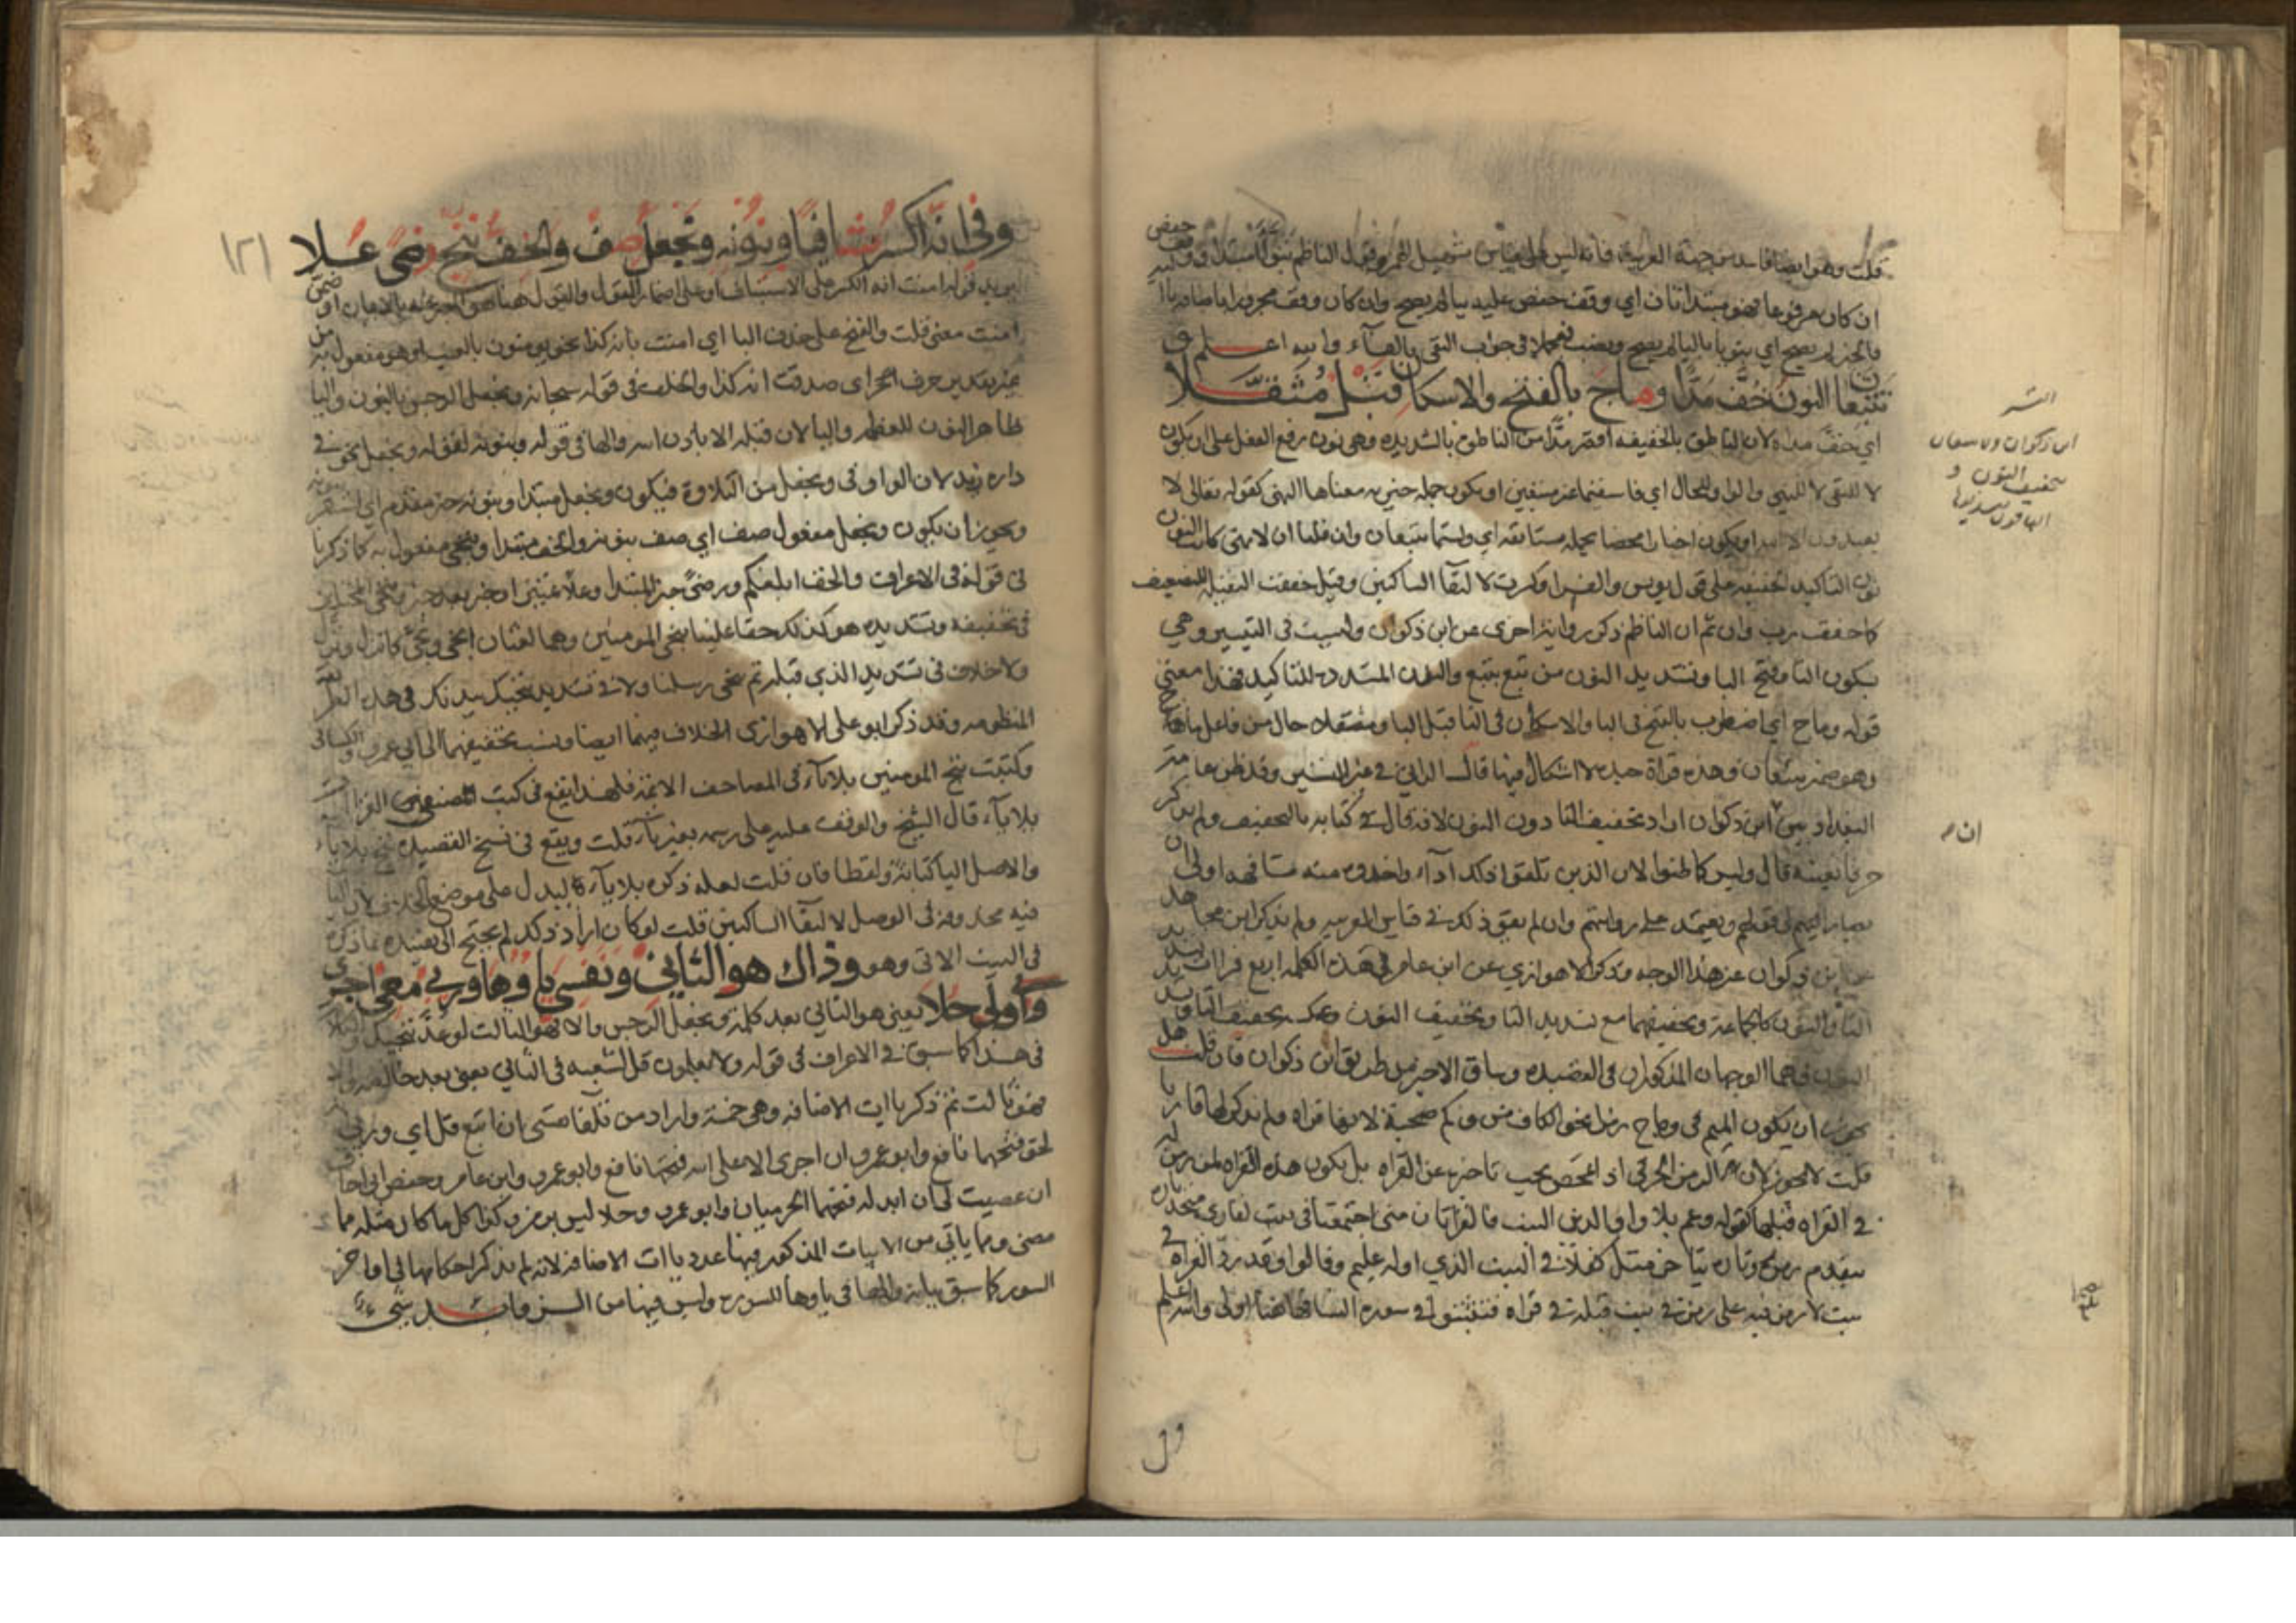 قلت وهو ايضا فاسد من جهة العربية فانه ليس على قياس تسهيل الهمز وقول الناظم تبوآ مبتدا ووقف حفص
ان كان مرفوعا فهو مبتدا ثان اي وقف حفص عليه بيا لم يصح وان كان وقف مجرورا باضافة يا
فالخبر لم يصح اي تبويا باليا لم يصح ونصب فيحملا في جواب النفي بالفآء والله اعلم
وتتبعان النون خف مدا وماج بالفتح والاسكان قبل مثقلا
اي خف مداه لان الناطق بالخفيفه اقصر مدا من الناطق بالشديده وهي نون رفع الفعل على ان يكون
لا للنفي لا للنهي والواو للحال اي فاستقيما غير متبعين او يكون جمله خبريه معناها النهي كقوله تعالى لا
تعبدون الا الله او يكون اخبارا محضا بجمله مستانفه اي ولستما تتبعان وان قلنا ان لا نهي كانت النون
نون التاكيد الخفيفه على قول يونس والفرا وكسرت لالتقآ الساكنين وقيل خففت الثقيله للتضعيف
كما خففت رب وان ثم ان الناظم ذكر رواية اخرى عن ابن ذكوان وليست في التيسير وهي
بسكون التا وفتح البا وتشديد النون من تبع يتبع والنون المشدده للتاكيد فهذا معنى
قوله وماج اي اضطرب بالفتح في البا والاسكان في التا قبل البا ومثقلا حال من فاعل ماج
وهو ضمير تتبعان وهذه قراة جيده لا اشكال فيها قال الداني في غير التيسير وقد ظن عامة
البغداديين ان ابن ذكوان اراد تخفيف التا دون النون لانه قال في كتابه بالتخفيف ولم يذكر
حرفا بعينه قال وليس كما ظنوا لان الذين تلقوا ذلك اداء واخذوه منه مشافهة اولى ان
يصار الى قولهم ويعتمد على روايتهم وان لم يقو ذلك في قياس العربيه ولم يذكر ابن مجاهد
عن ابن ذكوان غير هذا الوجه وذكر الاهوازي عن ابن عامر في هذه الكلمه اربع قراات تشديد
التا والنون كالجماعة وتخفيفهما مع تشديد التا وتخفيف النون وعكسه تخفيف التا وتشديد
النون فهما الوجهان المذكوران في القصيده وساق الاخير من طريق ابن ذكوان فان قلت هل
يجوز ان يكون الميم في وماج رمزا نحو الكاف من وكم صحبة لانها قراة ولم يذكر لها قاريا
قلت لا يجوز لان الرمز الحرفي اذا تمحض يجب تاخيره عن القراه بل يكون هذه القراه لمن رمز له
في القراه قبلها كقوله وعم بلا واو الذين البيت فالقراتان متى اجتمعتا في بيت لقاري متحد تاره
يتقدم رمزه وتاره يتاخر مثل كفلا في البيت الذي اوله عليم وقالوا وقد رد القراه في
بيت لا رمز فيه على رمز في بيت قبله في قراه فتثبتوا في سورة النسا فهاهنا اولى والله اعلم
ول
ابن ذكوان ولا تتبعان
تخفيف النون و
الباقون بتشديدها
١٢١
وفي انه اكسر شافيا وبنونه ونجعل صف والخف ننج رضى علا
يريد قوله امنت انه الكسر على الاستيناف او على اضمار القول والقول هنا هو المعبر عنه بالايمان او ضمن
امنت معنى قلت والفتح على حذف البا اي امنت بانه كذا نحو يومنون بالغيب او هو مفعول به من
غير تقدير حرف الجر اي صدقت انه كذا والخلف في قوله سبحانه ونجعل الرجس بالنون واليا
ظاهر النون للعظمه واليا لان قبله الا باذن الله والها في قوله وبنونه لقوله ونجعل نحو في
داره زيد لان الواو في ونجعل من التلاوة فيكون ونجعل مبتدا وبنونه خبر مقدم اي استقر بنونه
ويجوز ان يكون ونجعل مفعول صف اي صف بنونه والخف مبتدا وننجي مفعول به كما ذكرنا
في قوله في الاعراف والخف ابلغكم ورضى خبر المبتدا وعلا تمييز او خبر بعد خبر
في تخفيفه وتشديده هو كذلك حقا علينا ننجي المومنين وهما لغتان انجى ونجى كانزل ونزل
ولا خلاف في تشديد الذي قبله ثم ننجي رسلنا ولا في تشديد ننجيك ببدنك في هذه
المنظومه وقد ذكر ابو علي الاهوازي الخلاف فيهما ايضا ونسب تخفيفهما الى ابي عمرو والكسائي
وكتبت ننج المومنين بلا يآء في المصاحف الايمه فلهذا يقع في كتب المصنفين القرا
بلا يآء قال الشيخ والوقف عليه على رسمه بغير يآء قلت ويقع في نسخ القصيده ننج بلا ياء
والاصل اليا كتابة ولفظا فان قلت لعله ذكره بلا يآء ليدل على موضع الخلاف لان اليا
فيه محذوفه في الوصل لالتقآ الساكنين قلت لو كان اراد ذلك لم يحتج الى تقييده بما ذكره
في البيت الاتي وهو وذاك هو الثاني ونفسي ياؤها وربي مع اجري
وانى ولي حلا يعني هو الثاني بعد كلمة ونجعل الرجس والا فهو الثالث لو عد ننجيك
في هذا كما سبق في الاعراف في قوله ولا يعلمون قل لشعبه في الثاني يعني بعد خالصه والا
فهو ثالث ثم ذكر ياات الاضافه وهي خمسة واراد من تلقا نفسي ان اتبع قل اي وربي انه
لحق فتحهما نافع وابو عمرو ان اجري الا على الله فتحها نافع وابو عمرو وابن عامر وحفص اني اخاف
ان عصيت لي ان ابدله فتحهما الحرميان وابو عمرو وحلا ليس برمز وكذا كل ما كان مثله مما
مضى وما ياتي من الابيات المذكور فيها عدد ياات الاضافه لانه لم يذكر احكامها في اواخر
السور كما سبق بيانه والها في ياوها للسوره وليس فيها من الزوايد شي